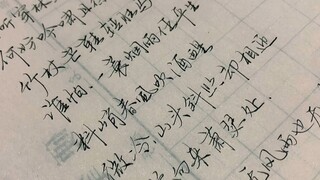 听穿林
何妨吟啸且徐
竹杖芒鞋轻胜马
谁怕一蓑烟雨任平生
料峭春风吹酒醒
微冷山头斜照却相迎
向来萧瑟处
无风雨也无